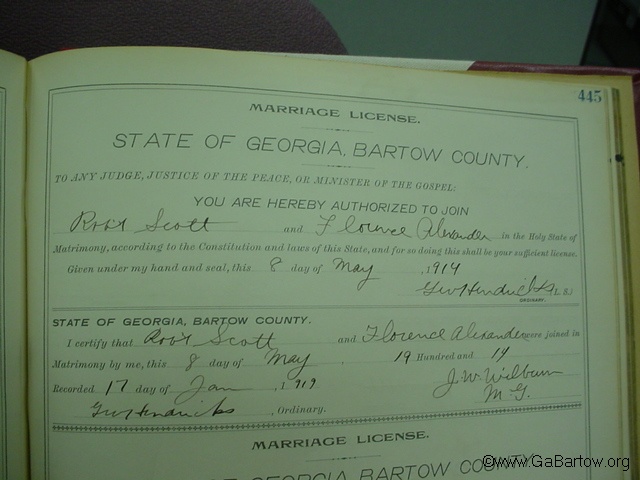 445
MARRIAGE LICENSE.
STATE OF GEORGIA, BARTOW COUNTY.
TO ANY JUDGE, JUSTICE OF THE PEACE, OR MINISTER OF THE GOSPEL:
YOU ARE HEREBY AUTHORIZED TO JOIN
Rob't Scott and Florence Alexander in the Holy State of
Matrimony, according to the Constitution and laws of this State, and for so doing this shall be your sufficient license.
Given under my hand and seal, this 8 day of May , 1914
Geo W Hendricks (L. S.)
ORDINARY.
STATE OF GEORGIA, BARTOW COUNTY.
I certify that Rob't Scott and Florence Alexander were joined in
Matrimony by me, this 8 day of May , 19 Hundred and 14
Recorded 17 day of Jan , 1919 J. W. Wilburn
M. G.
Geo W Hendricks , Ordinary.
MARRIAGE LICENSE.
STATE OF GEORGIA, BARTOW COUNTY.
©www.GaBartow.org